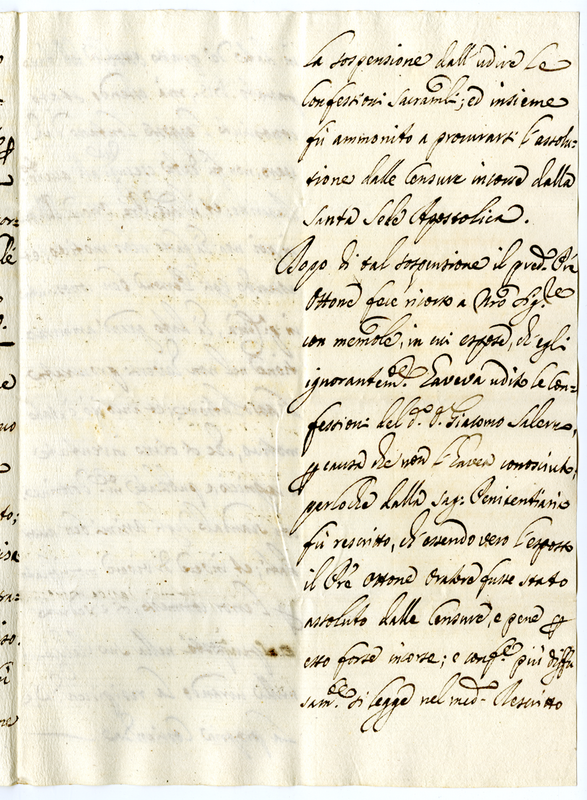 la sospensione dall'udire le
Confessioni Sacram.li; ed insieme
fù ammonito a procurarsi l'assolu=
tione dalle Censure incorse dalla
Santa Sede Apostolica.
Dopo di tal sospensione il pred.o Pre
Ottone fece ricorso a Nro Sig.re
con mem.le, in cui espose, ch'egli
ignorantem.te haveva udito le Con=
fessioni del d.o D. Giacomo Salerno,
p causa che non l'havea conosciuto,
perloche dalla Sag: Penitentiaria
fù rescritto, ch'essendo vero l'esposto
il Pre Ottone Oratore fusse stato
assoluto dalle Censure, e pene p
esso forse incorse; e conf.e più diffu
sam.te si legge nel med.o Rescritto